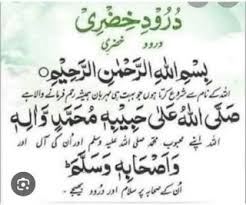 دُرودِ خِضری
درود خضری
بِسْمِ اللهِ الرَّحْمٰنِ الرَّحِيْمِ
اللہ کے نام سے شروع کرتا ہوں جو بہت ہی مہربان ہمیشہ رحم فرمانے والا ہے
صَلَّى اللهُ عَلٰى حَبِيْبِهٖ مُحَمَّدٍ وَّاٰلِهٖ
اللہ اپنے محبوب محمد صلی اللہ علیہ وسلم اور اُن کی آل اور
وَاَصْحَابِهٖ وَسَلَّمْ
اُن کے صحابہ پر سلام اور درود بھیجے ۔